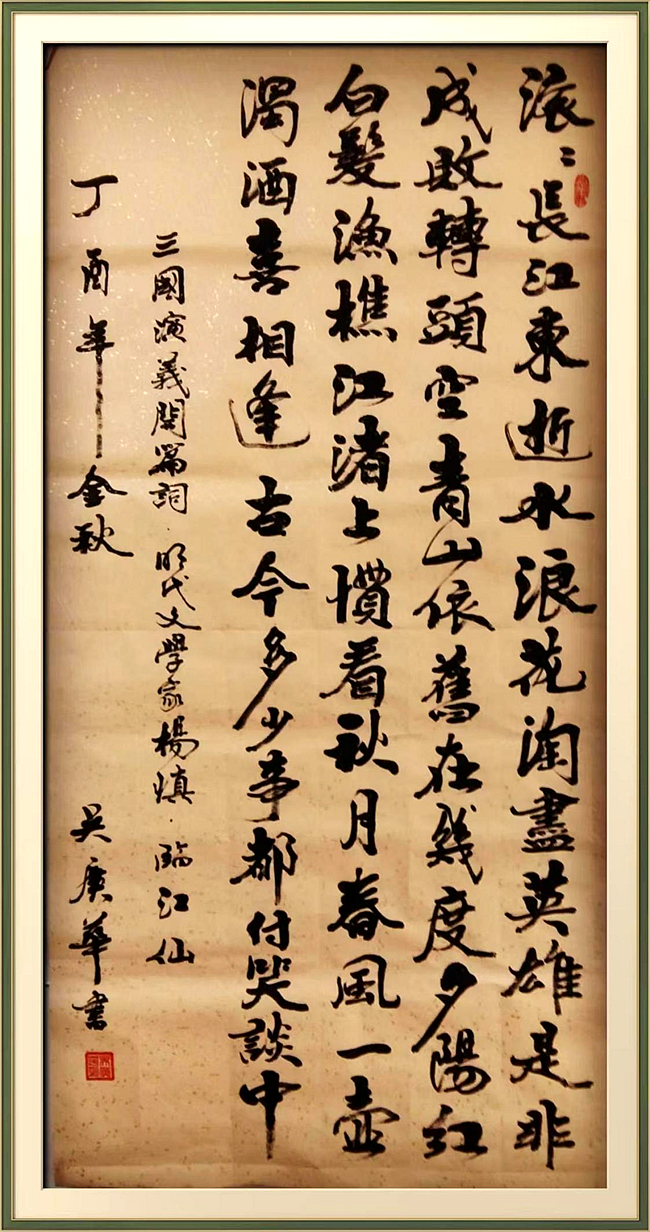 滚〻長江東逝水浪花淘盡英雄是非
成敗轉頭空青山依舊在幾度夕陽紅
白髮漁樵江渚上慣看秋月春風一壺
濁酒喜相逢古今多少事都付笑談中
三國演義開篇詞·明代文學家楊慎·臨江仙
丁酉年金秋 吴庚華書